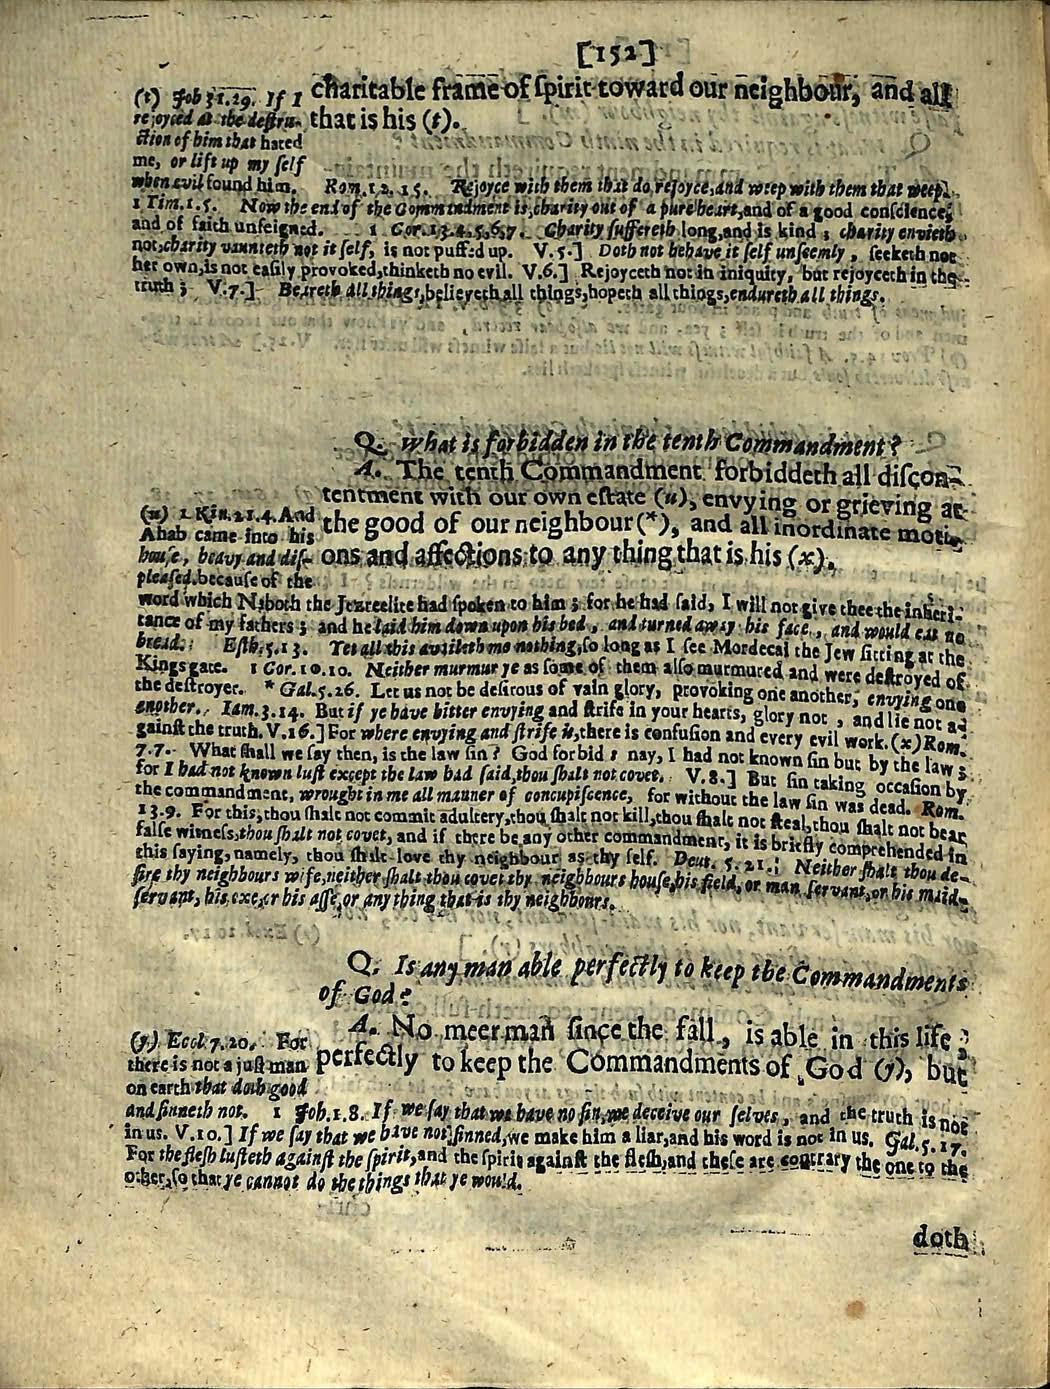 [152]
charitable frame of ſpirit toward our neighbour, and all
that is his (t).
(t) Job 31.29. If I
rejoyced at the deſtru-
ction of him that hated
me, or lift up my ſelf
when evil found him. Rom.12.15. Rejoyce with them that do rejoyce,and weep with them that weep.
1 Tim.1.5. Now the end of the Commandment is,charity out of a pure heart,and of a good conſcience,
and of faith unfeigned. 1 Cor.13.4,5,6,7. Charity ſuffereth long,and is kind ; charity envieth
not,charity vaunteth not it ſelf, is not puffed up. V.5.] Doth not behave it ſelf unſeemly, ſeeketh not
her own,is not eaſily provoked,thinketh no evil. V.6.] Rejoyceth not in iniquity, but rejoyceth in the
truth ; V.7.] Beareth all things,believeth all things,hopeth all things,endureth all things.
Q. What is forbidden in the tenth Commandment?
A. The tenth Commandment forbiddeth all diſcon-
tentment with our own eſtate (u), envying or grieving at
the good of our neighbour(*), and all inordinate moti-
ons and affections to any thing that is his (x).
(u) 1 Kin.21.4. And
Ahab came into his
houſe, heavy and diſ-
pleaſed,becauſe of the
word which Naboth the Jezreelite had ſpoken to him ; for he had ſaid, I will not give thee the inheri-
tance of my fathers ; and he laid him down upon his bed, and turned away his face, and would eat no
bread. Eſth.5.13. Yet all this availeth me nothing,ſo long as I ſee Mordecai the Jew ſitting at the
Kings gate. 1 Cor.10.10. Neither murmur ye as ſome of them alſo murmured and were deſtroyed of
the deſtroyer. * Gal.5.26. Let us not be deſirous of vain glory, provoking one another, envying one
another. Iam.3.14. But if ye have bitter envying and ſtrife in your hearts, glory not, and lie not a-
gainſt the truth. V.16.] For where envying and ſtrife is,there is confuſion and every evil work. (x) Rom.
7.7. What ſhall we ſay then, is the law ſin? God forbid : nay, I had not known ſin but by the law ;
for I had not known luſt except the law had ſaid,thou ſhalt not covet. V.8.] But ſin taking occaſion by
the commandment, wrought in me all manner of concupiſcence, for without the law ſin was dead. Rom.
13.9. For this,thou ſhalt not commit adultery,thou ſhalt not kill,thou ſhalt not ſteal,thou ſhalt not bear
falſe witneſs,thou ſhalt not covet, and if there be any other commandment, it is briefly comprehended in
this ſaying, namely, thou ſhalt love thy neighbour as thy ſelf. Deut. 5.21. Neither ſhalt thou de-
ſire thy neighbours wife,neither ſhalt thou covet thy neighbours houſe,his field,or man ſervant,or his maid-
ſervant, his oxe,or his aſſe,or any thing that is thy neighbours.
Q. Is any man able perfectly to keep the Commandments
of God?
A. No meer man ſince the fall, is able in this life
perfectly to keep the Commandments of God (y), but
(y) Eccl.7.20. For
there is not a juſt man
on earth that doth good
and ſinneth not. 1 Joh.1.8. If we ſay that we have no ſin,we deceive our ſelves, and the truth is not
in us. V.10.] If we ſay that we have not ſinned,we make him a liar,and his word is not in us. Gal.5.17.
For the fleſh luſteth againſt the ſpirit,and the ſpirit againſt the fleſh,and theſe are contrary the one to the
other,ſo that ye cannot do the things that ye would.
doth